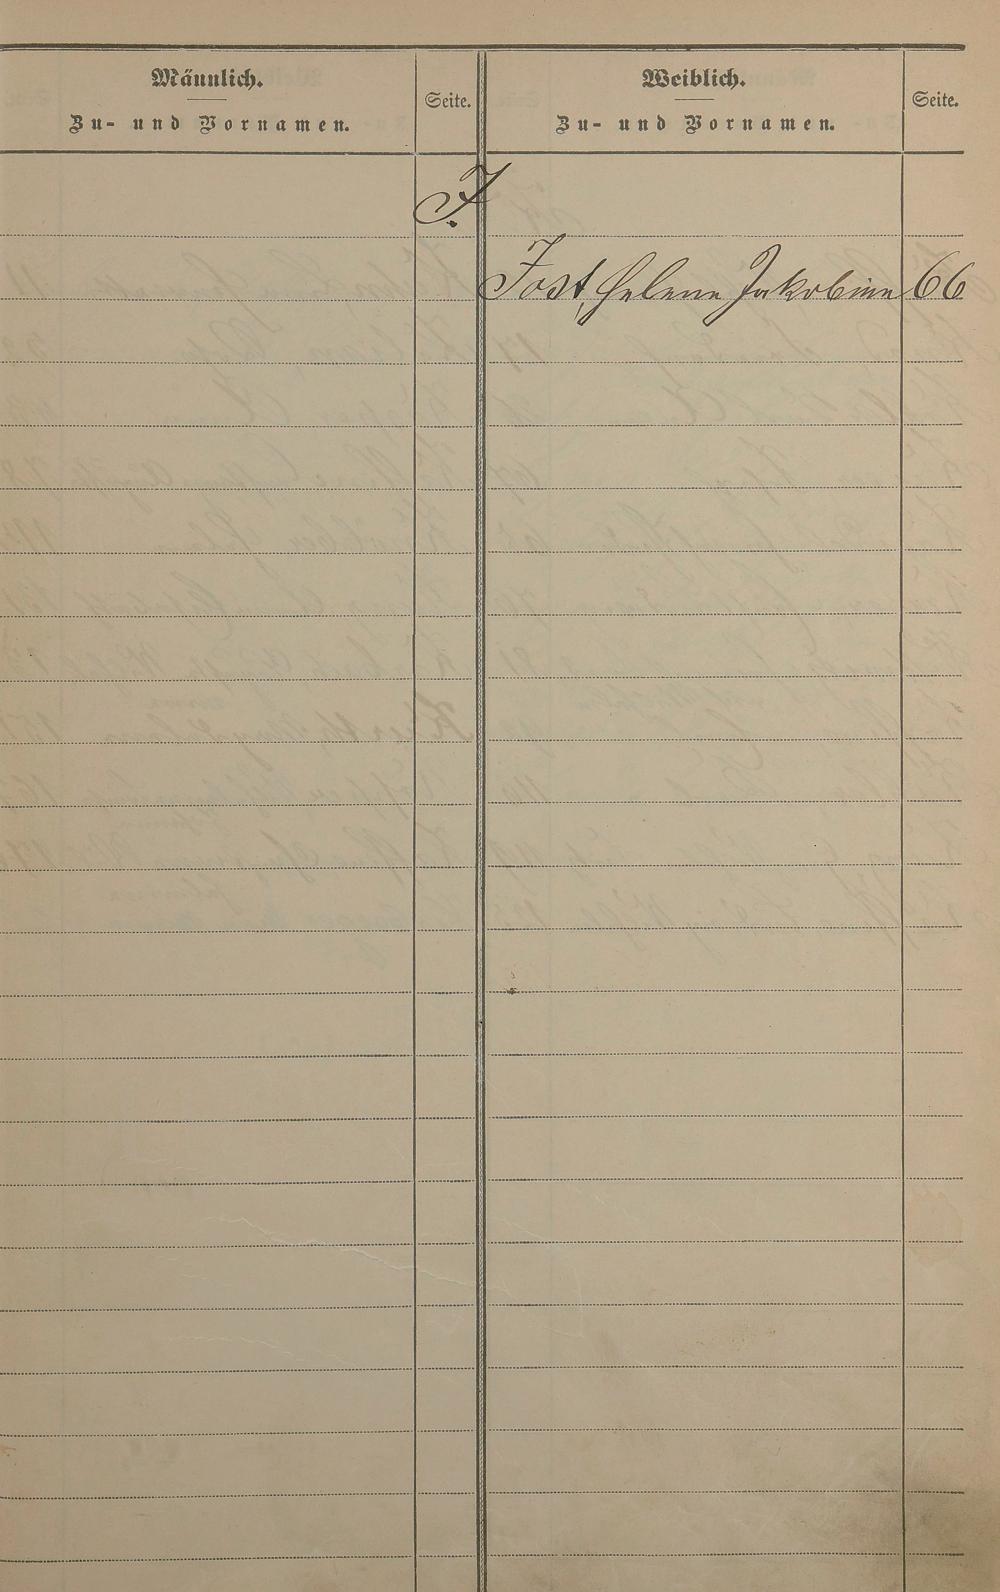 Männlich.
Zu- und Vornamen.
Seite.
Weiblich.
Zu- und Vornamen.
Seite.
J.
Jost, Helene Jakobine 66